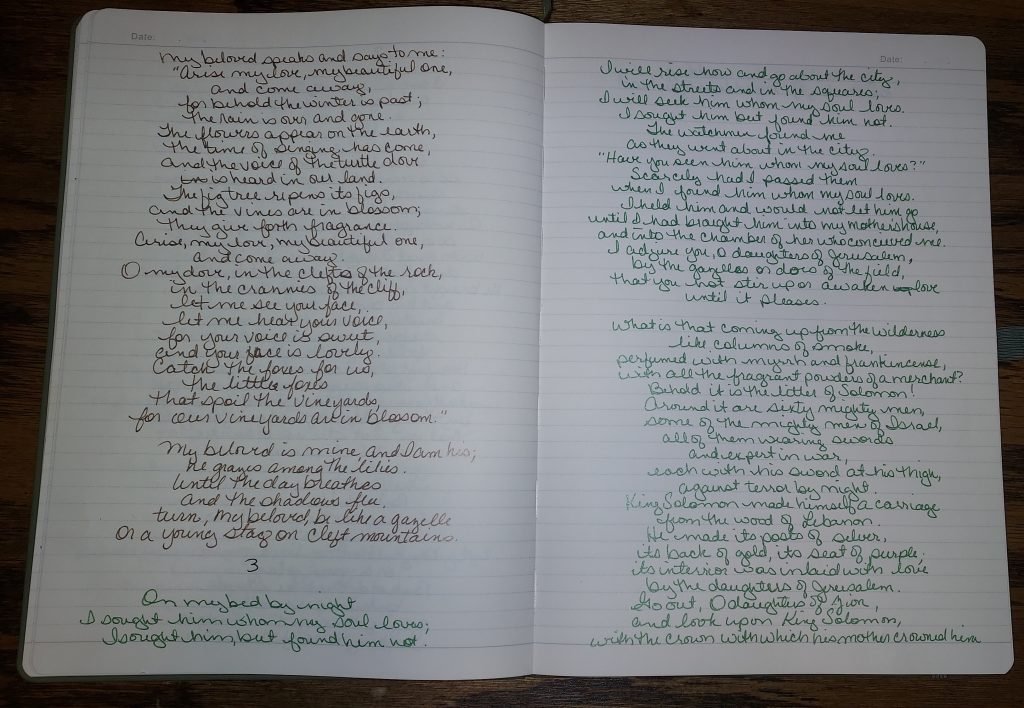 Date:
My beloved speaks and says to me:
"Arise my love, my beautiful one,
and come away,
for behold the winter is past;
the rain is over and gone.
The flowers appear on the earth,
the time of singing has come,
and the voice of the turtle dove
is heard in our land.
The fig tree ripens its figs,
and the vines are in blossom;
they give forth fragrance.
Arise, my love, my beautiful one,
and come away.
O my dove, in the clefts of the rock,
in the crannies of the cliff,
let me see your face,
let me hear your voice,
for your voice is sweet,
and your face is lovely.
Catch the foxes for us,
the little foxes
that spoil the vineyards,
for our vineyards are in blossom."
My beloved is mine, and I am his;
he grazes among the lilies.
Until the day breathes
and the shadows flee.
turn, my beloved, be like a gazelle
or a young stag on cleft mountains.
3
On my bed by night
I sought him whom my soul loves;
I sought him, but found him not.
Date:
I will rise now and go about the city,
in the streets and in the squares;
I will seek him whom my soul loves.
I sought him but found him not.
The watchmen found me
as they went about in the city.
"Have you seen him whom my soul loves?"
Scarcely had I passed them
when I found him whom my soul loves.
I held him and would not let him go
until I had brought him into my mothers house,
and into the chamber of her who conceived me.
I adjure you, O daughters of Jerusalem,
by the gazelles or does of the field,
that you not stir up or awaken love
until it pleases.
What is that coming up from the wilderness
like columns of smoke,
perfumed with myrrh and frankincense,
with all the fragrant powders of a merchant?
Behold it is the litter of Solomon!
Around it are sixty mighty men,
some of the mighty men of Israel,
all of them wearing swords
and expert in war,
each with his sword at his thigh,
against terror by night.
King Solomon made himself a carriage
from the wood of Lebanon.
He made its posts of silver,
its back of gold, its seat of purple;
its interior was inlaid with love
by the daughters of Jerusalem.
Go out, O daughters of Zion,
and look upon King Solomon,
with the crown with which his mother crowned him